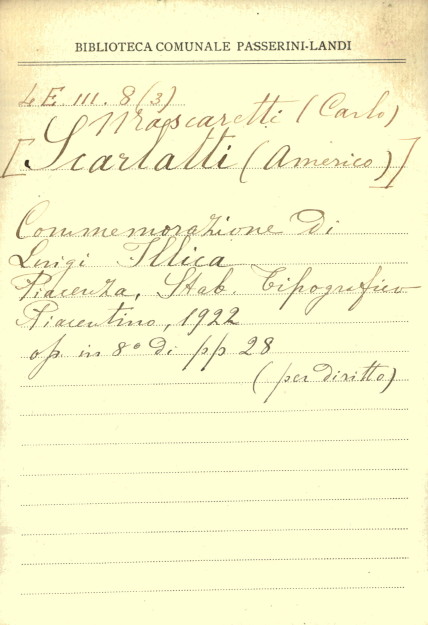 BIBLIOTECA COMUNALE PASSERINI-LANDI
4 E III. 8 (3)
Mascaretti (Carlo)
[Scarlatti (Americo)]
Commemorazione di
Luigi Illica
Piacenza, Stab. Tipografico
Piacentino, 1922
op. in 8º di pp 28
(per diritto)